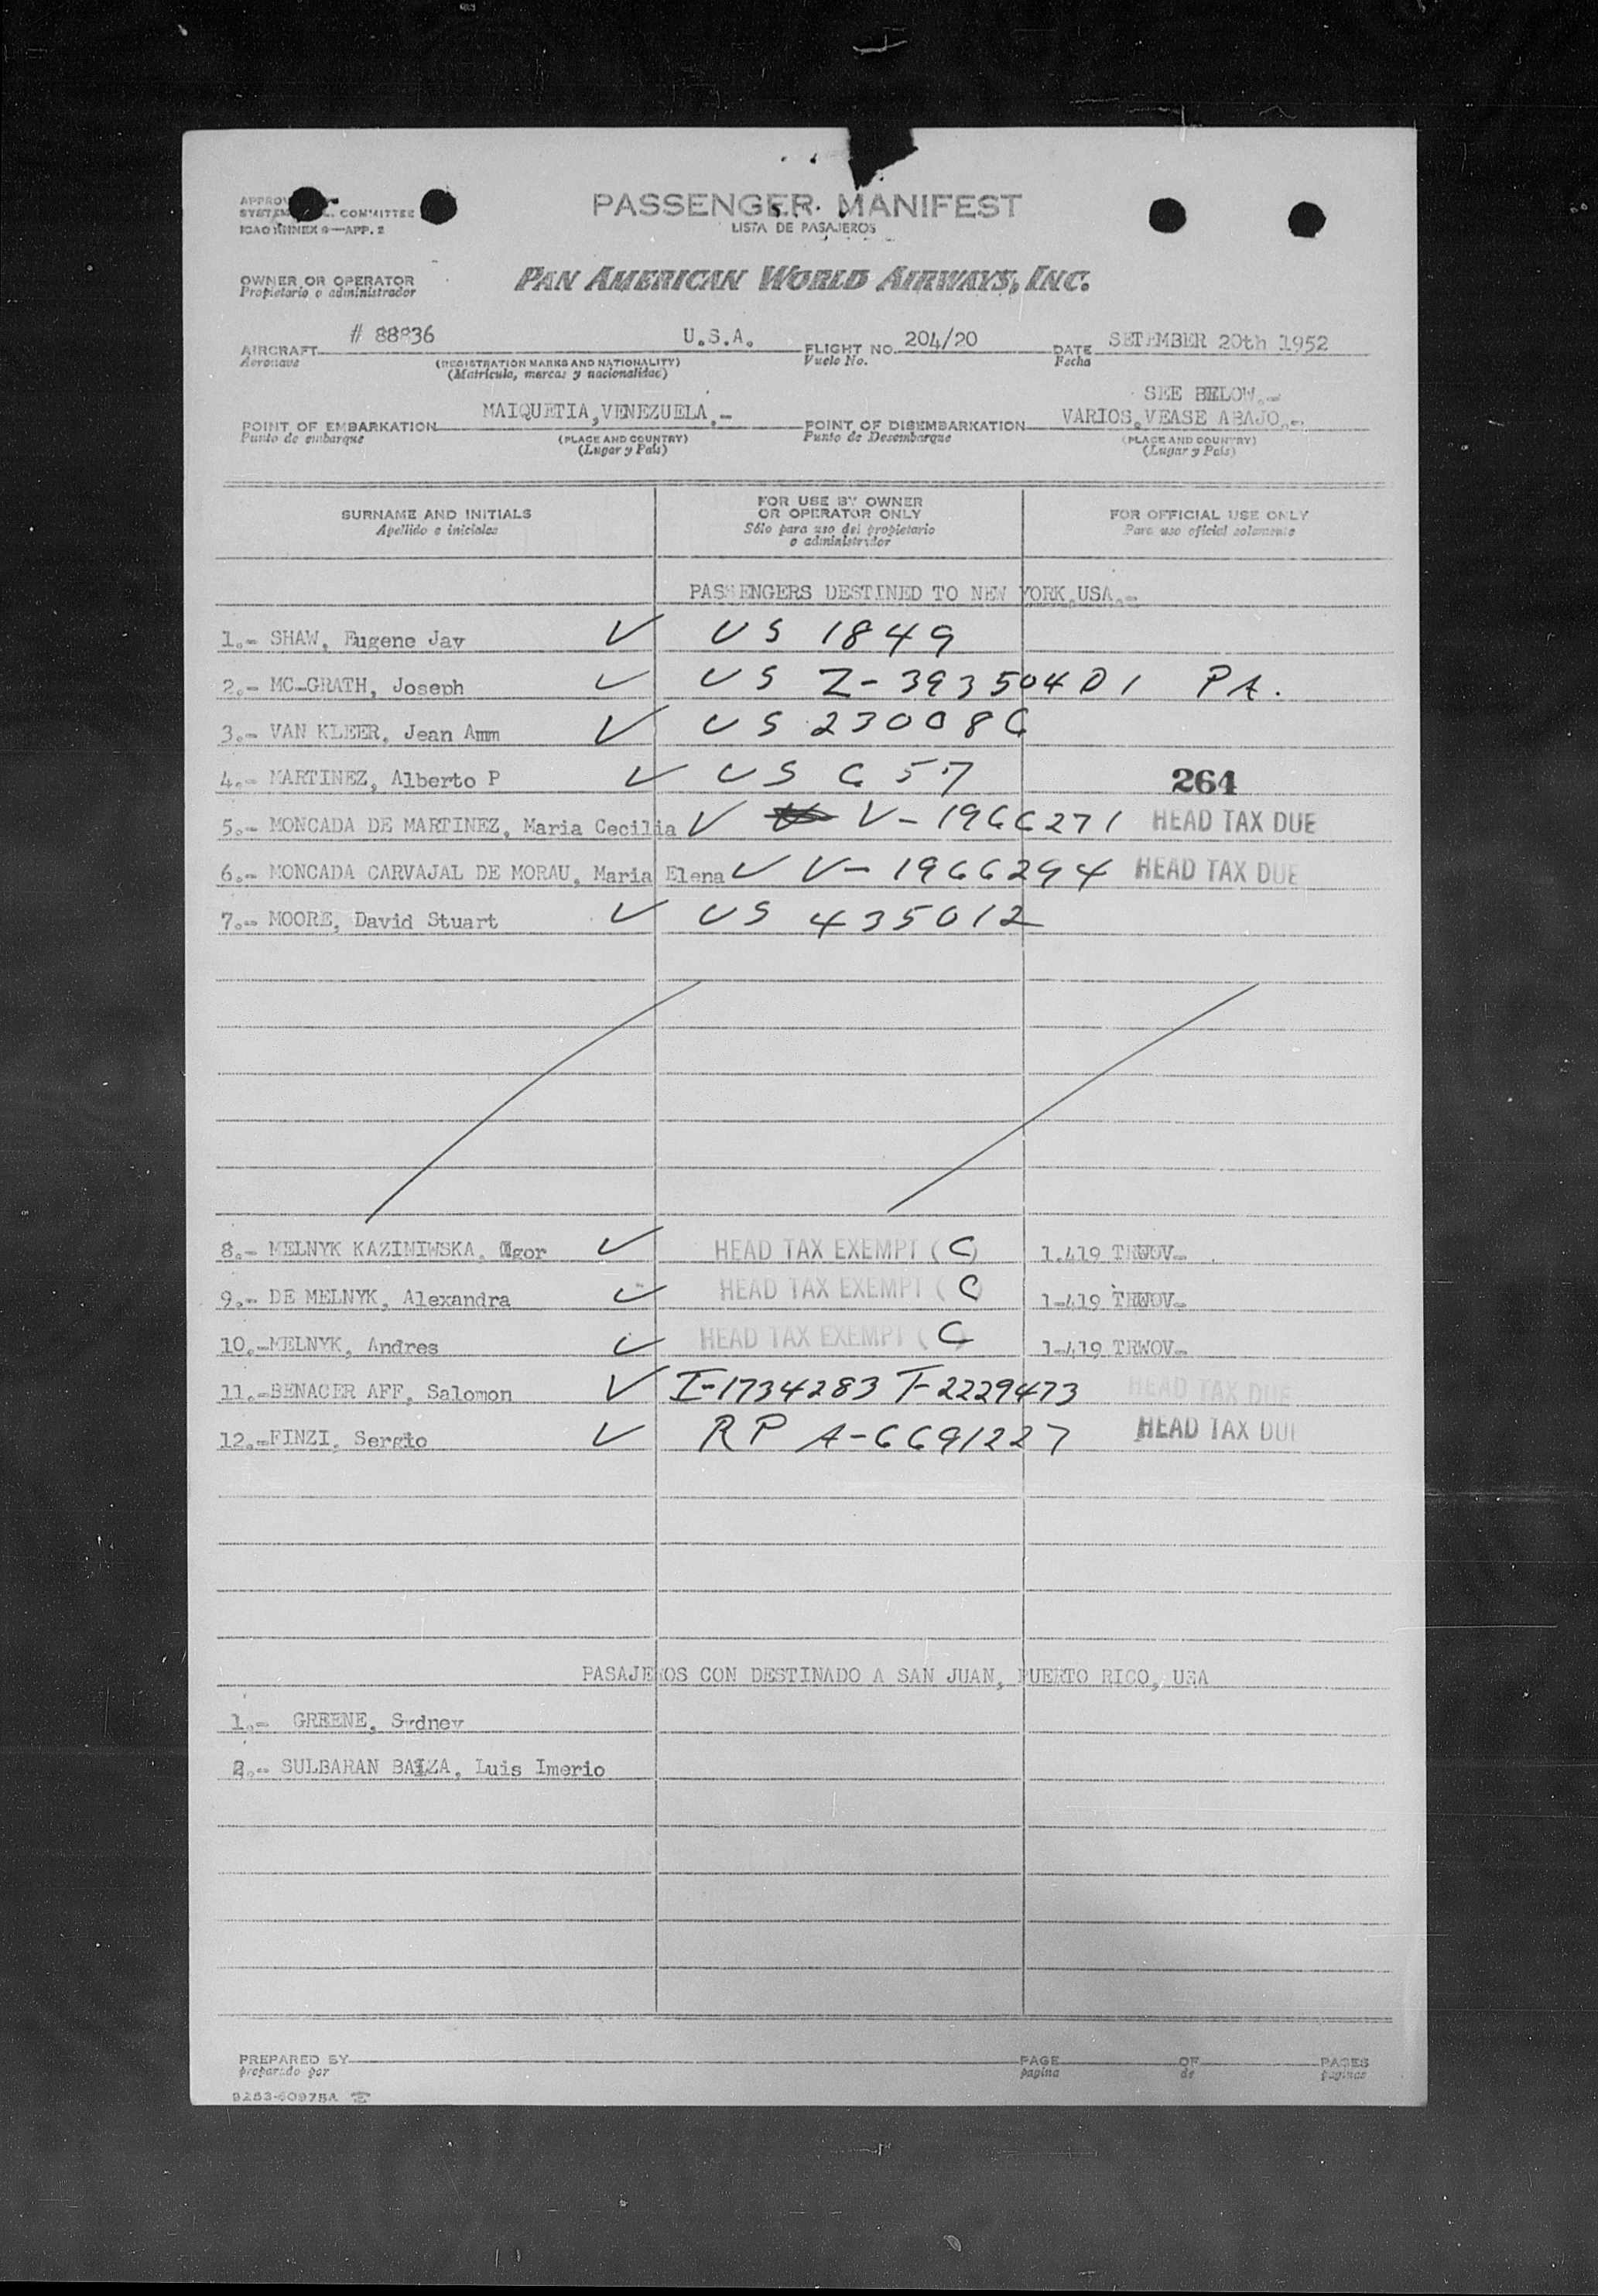 PASSENGER MANIFEST
LISTA DE PASAJEROS
SYSTEM COMMITTEE
ICAO ANNEX 9—APP. 2
OWNER OR OPERATOR
Propietario o administrador
PAN AMERICAN WORLD AIRWAYS, INC.
AIRCRAFT # 88836 U.S.A. FLIGHT NO. 204/20 DATE SETEMBER 20th 1952
Aeronave (REGISTRATION MARKS AND NATIONALITY) Vuelo No. Fecha
(Matrícula, marcas y nacionalidad)
SEE BELOW.-
POINT OF EMBARKATION MAIQUETIA, VENEZUELA.- POINT OF DISEMBARKATION VARIOS, VEASE ABAJO.-
Punto de embarque (PLACE AND COUNTRY) Punto de Desembarque (PLACE AND COUNTRY)
(Lugar y País) (Lugar y País)
SURNAME AND INITIALS FOR USE BY OWNER OR OPERATOR ONLY FOR OFFICIAL USE ONLY
Apellido e iniciales Sólo para uso del propietario o administrador Para uso oficial solamente
PASSENGERS DESTINED TO NEW YORK, USA.-
1.- SHAW, Eugene Jay ✓ US 1849
2.- MC-GRATH, Joseph ✓ US Z-393504 D1 PA.
3.- VAN KLEER, Jean Amm ✓ US 230086
4.- MARTINEZ, Alberto P ✓ US 657 264
5.- MONCADA DE MARTINEZ, Maria Cecilia ✓ V-1966271 HEAD TAX DUE
6.- MONCADA CARVAJAL DE MORAU, Maria Elena ✓ V-1966294 HEAD TAX DUE
7.- MOORE, David Stuart ✓ US 435012
8.- MELNYK KAZIMIWSKA, Igor ✓ HEAD TAX EXEMPT (C) 1.419 TRWOV-
9.- DE MELNYK, Alexandra ✓ HEAD TAX EXEMPT (C) 1-419 TRWOV-
10.- MELNYK, Andres ✓ HEAD TAX EXEMPT (C) 1-419 TRWOV-
11.- BENACER AFF, Salomon ✓ I-1734283 T-2229473 HEAD TAX DUE
12.- FINZI, Sergio ✓ RP A-6691227 HEAD TAX DUE
PASAJEROS CON DESTINADO A SAN JUAN, PUERTO RICO, USA
1.- GREENE, Sydney
2.- SULBARAN BAIZA, Luis Imerio
PREPARED BY PAGE OF PAGES
preparado por pagina de paginas
9253-60975A